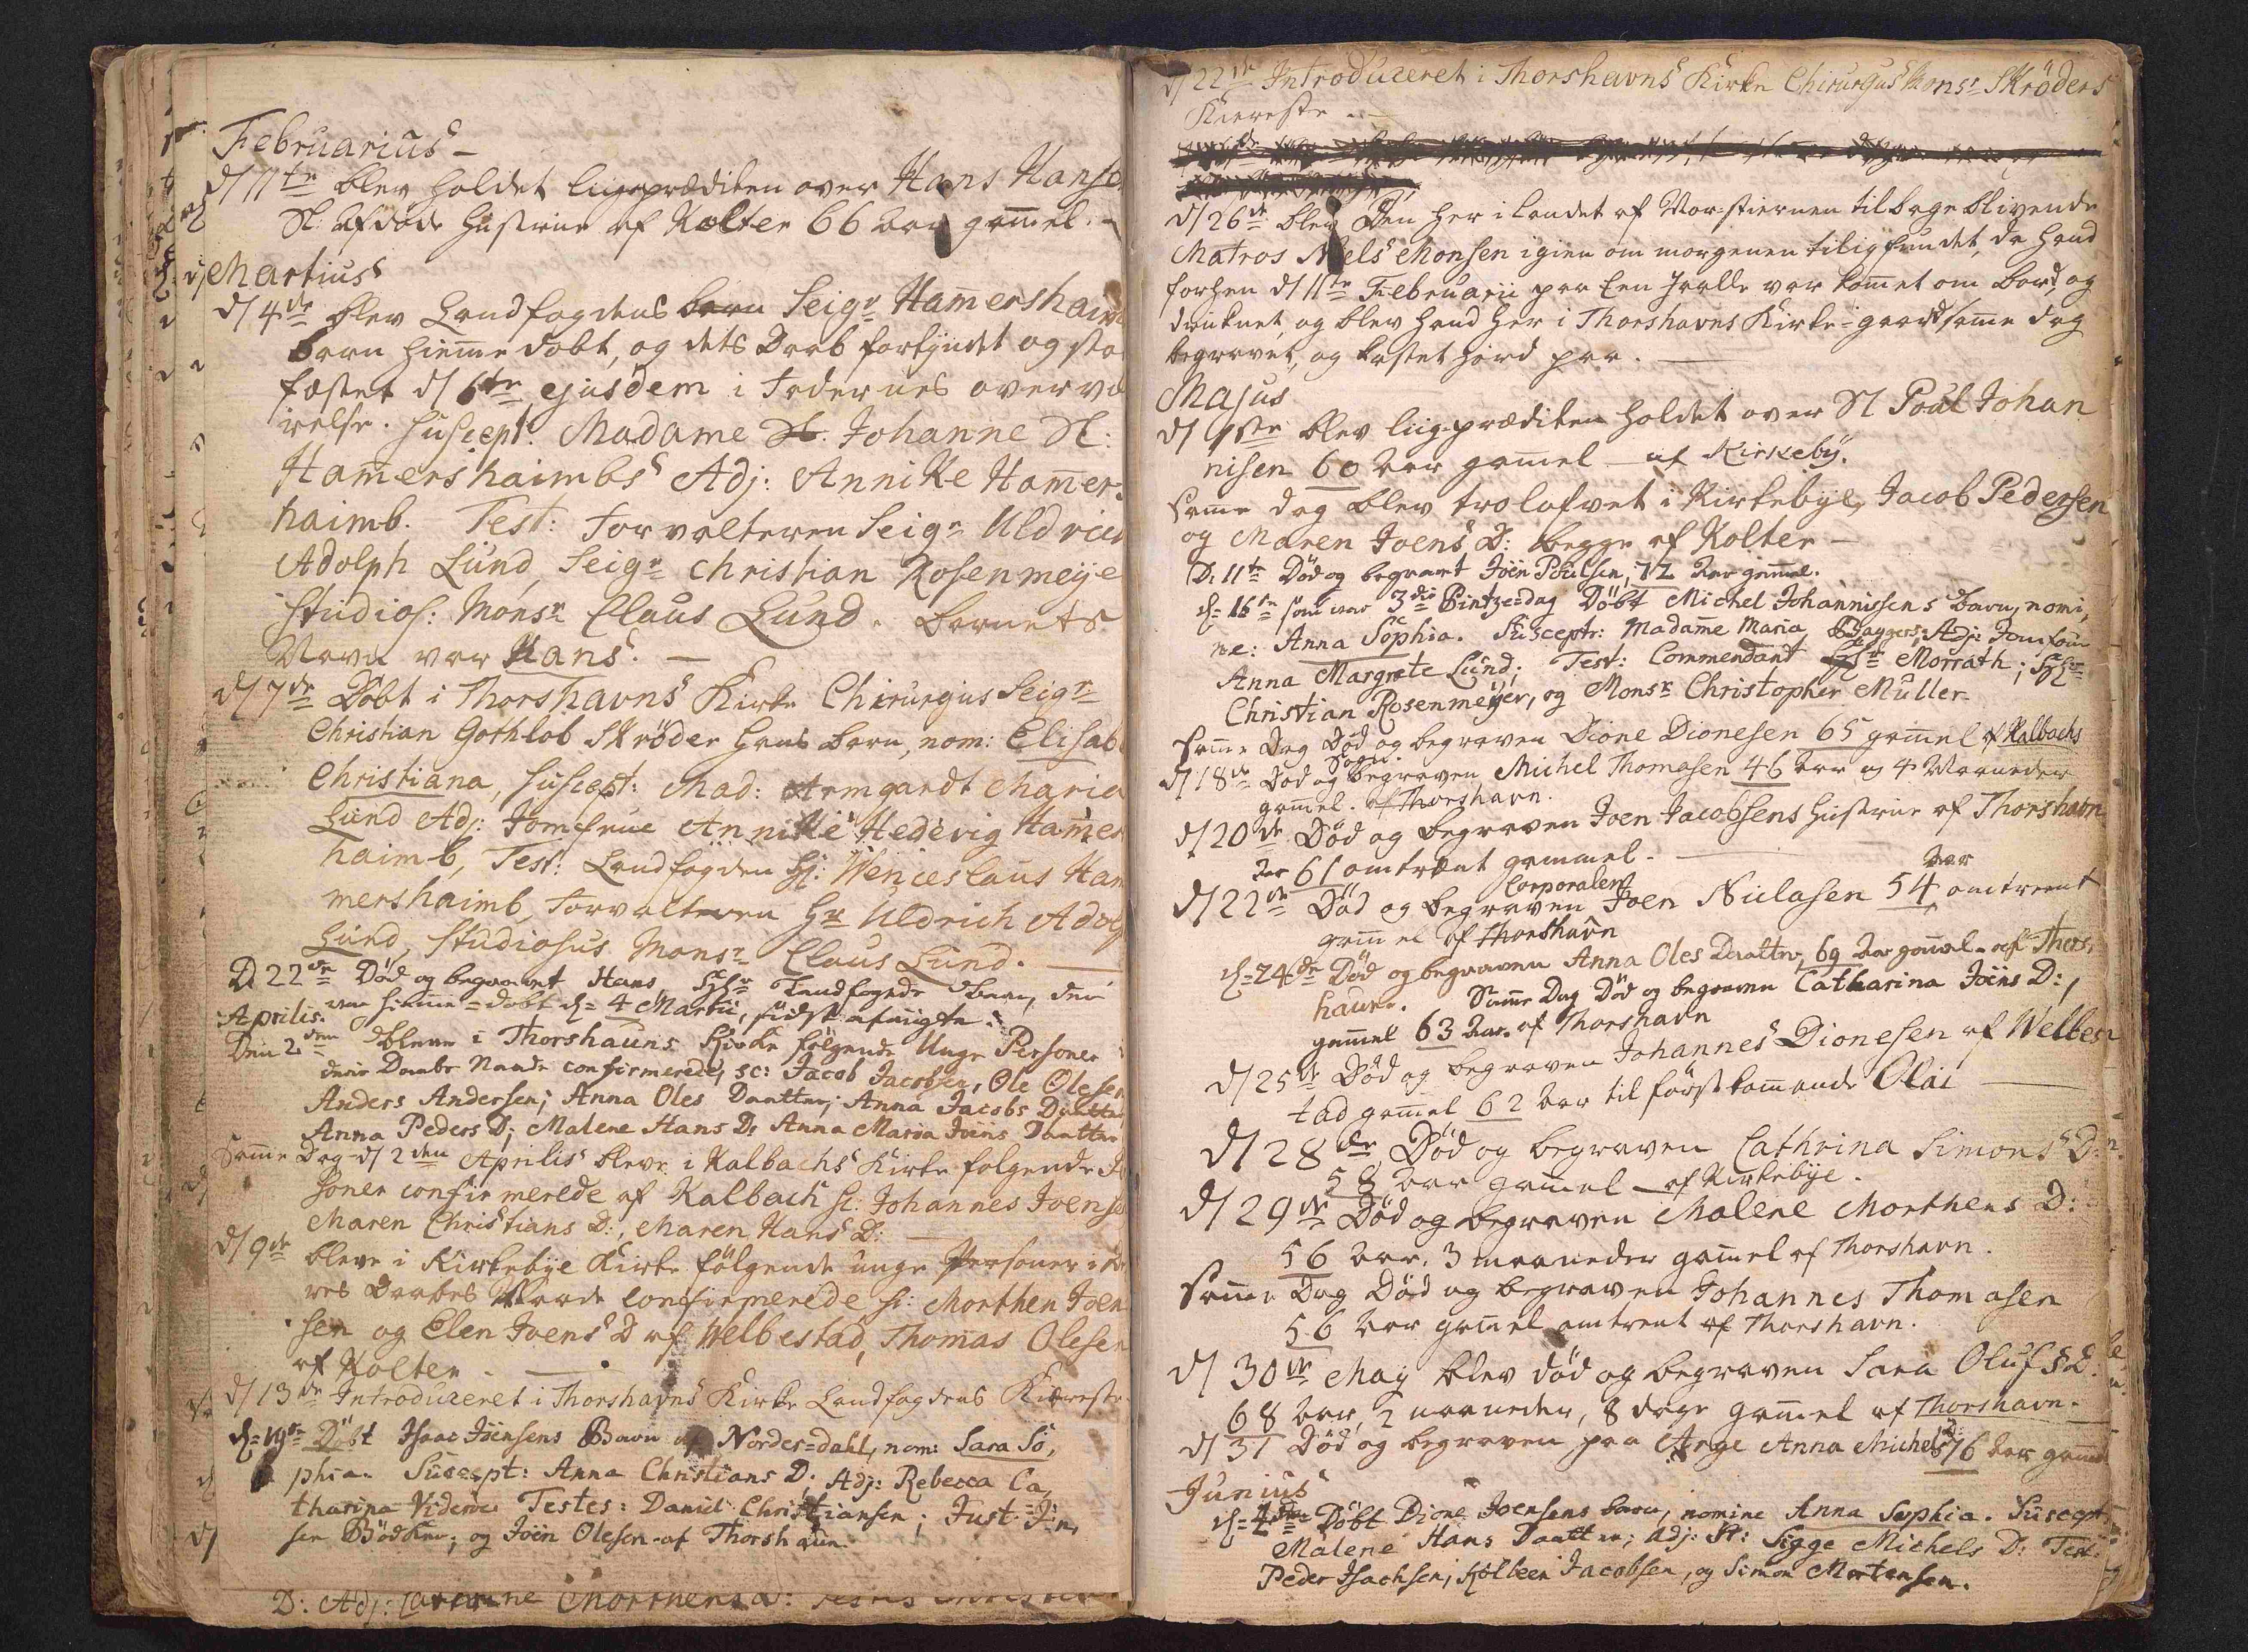 Februarius
d/ 11te blev holdet liigprædiken over Hans Hanse
Sl: afdøde hustrue af Kolter 66 aar gam̄el.
Martius
d/ 4de blev Landfogdens barn Seigr Ham̄ershaim
barn hiem̄e døbt, og dets Daab forkyndt og sta
fæstet d/ 6te ejusdem i Fadernes overvæ
relse. Suscept: Madame Sl. Johanne Sl:
Ham̄ershaimbs Adj: Annike Ham̄ers
haimb. Test: Forvalteren Seigr Uldrich
Adolph Lund, Seigr Christian Rosenmeye
Studios: Monsr Claus Lund. Barnets
Navn var Hans.
d/ 7de Døbt i Thorshavns Kirke Chirurgus Seigr
Christian Gothlob Skrøder hans barn, nom: Elisab
Christiana, Suscept: Mad: Armgardt Maria
Lund Adj: Jomfrue Annike Hedevig Ham̄er
haimb, Test: Landfogden Hr: Wenceslaus Ham
mershaimb, Forvalteren Hr Uldrich Adolp
Lund, Studiosus Monsr Claus Lund.
D 22de Død og begravet Hans, Landfogeds Barn, der
var hiem̄e-døbt d= 4 Martii, sidst afvigte.
Aprilis.
Den 2den bleve i Thorshauns Kirke følgende Unge Personer
deris Daabs Naade confirmerede, sc: Jacob Jacobsen, Ole Olesen
Anders Andersen; Anna Oles Daatter; Anna Jacobs Daatter
Anna Peders D; Malene Hans Dr Anna Maria Joens Daatter
Sam̄e Dag d/ 2den Aprilis bleve i Kalbachs Kirke følgende Pe
soner confirmerede af Kalbach sc: Johannes Joense
Maren Christians D:, Maren Hans D:
d/ 9de bleve i Kirkebye Kirke følgende unge Personer i de
res Daabes Naade confirmerede sc: Morthen Joen
sen og Elen Joens D af Welbestad, Thomas Olesen
af Kolter
d/ 13de Introduceret i Thorshavns Kirke Landfogdens Kiæreste
d= 19de Døbt Isaac Joensens Barn af Norder=dahl, nom: Sara So,
phia. Suscept: Anna Christians D; Adj: Rebecca Ca,
tharina Videroe Testes: Daniel Christiansen; Just Jen,
sen Bødker; og Joen Olesen af Thorshaun.
D: Adj: Morthens D:
d/ 22de Introduceret i Thorshavns Kirke Chirurgus Monsr Skrøders
Kiereste
d/ 26de blev Den her i landet af Mor=stiernen tilbage blivende
Matros Niels Monsen igien om morgenen tilig fundet, da hand
forhen d/ 11te Februarii paa een Jolle var kom̄et om bord og
druknet, og blev hand her i Thorshavns Kirke=gaard sam̄e dag
begravet, og kastet jord paa.
Majus
d/ 1ste blev liig-prædiken holdet over Sl Poul Johan
nisen 60 aar gam̄el af Kirkeby.
Sam̄e dag blev trolofvet i Kirkebye, Jacob Pedersen
og Maren Joens D: begge af Kolter
D. 11te Død og begravet Joen Poulsen, 72 Aar gam̄el.
d= 16te som var 3die Pintze=dag Døbt Michel Johannissens barn, nomi,
ne: Anna Sophia. Susceptr: Madam̄e Maria Adj: Jomfrue
Anna Margrete Lund; Test: Commendant Morrath;
Christian Rosenmeyer, og Monsr Christopher Müller
Sam̄e Dag Død og begraven Dione Dionesen 65 gam̄el af Kalbachs
Sogn.
d/ 18de Død og begraven Michel Thomasen 46 Aar og 4 Maaneder
gam̄el. af Thorshavn.
d/ 20de Død og begraven Joen Jacobsens Hustrue af Thorshavn
Aar 61 omtrent gammel.
d/ 22de Død og begraven Corporalen Joen Niclasen 54 Aar omtrent
gam̄el af Thorshavn
d= 24de Død og begraven Anna Oles Daatter, 69 Aar gam̄el af Thors,
haun. Sam̄e Dag Død og begraven Catharina Joens D:,
gam̄el 63 Aar af Thorshavn
d/ 25de Død og begraven Johannes Dionesen af Welbe
stad gam̄el 62 Aar til førstkom̄ende Olai
d/ 28de Død og begraven Cathrina Simons D:
58 aar gam̄el af Kirkebye.
d/ 29de Død og begraven Malene Morthens D:
56 aar, 3 maaneder gam̄el af Thorshavn.
Sam̄e Dag Død og begraven Johannes Thomasen
56 aar gam̄el omtrent af Thorshavn.
d/ 30de May blev død og begraven Sara Olufs D.
68 aar, 2 maaneder, 8 dage gam̄el af Thorshavn.
d/ 31 Død og begraven paa Arge Anna Michels D: 76 Aar gam̄el
Junius
d= Døbt Dione Joensens barn, nomine Anna Sophia. Suscept
Malene Hans Daatter; Adj: Sigge Michels D: Test:
Peder Isachsen; Kolbeen Jacobsen, og Simon Mortensen.